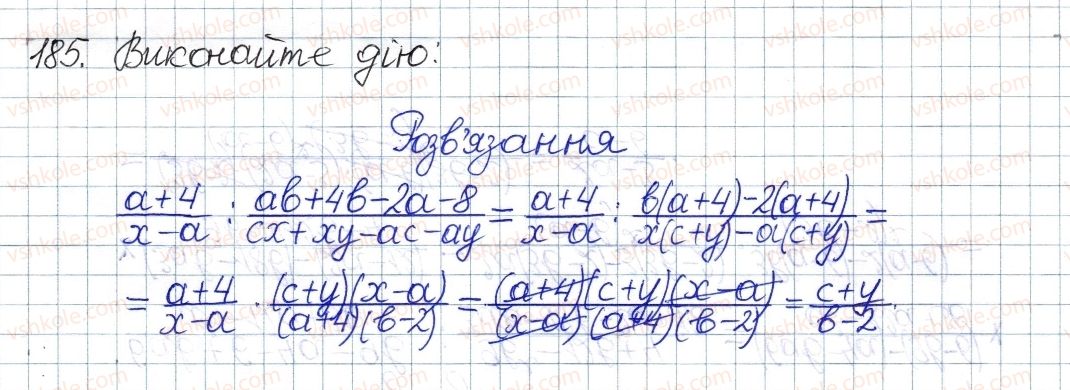 185. Виконайте дію:
Розв'язання
(a+4)/(x-a) : (aв+4в-2a-8)/(cx+xy-ac-ay) = (a+4)/(x-a) : (в(a+4)-2(a+4))/(x(c+y)-a(c+y)) =
= (a+4)/(x-a) · ((c+y)(x-a))/((a+4)(в-2)) = ((a+4)(c+y)(x-a))/((x-a)·(a+4)(в-2)) = (c+y)/(в-2).